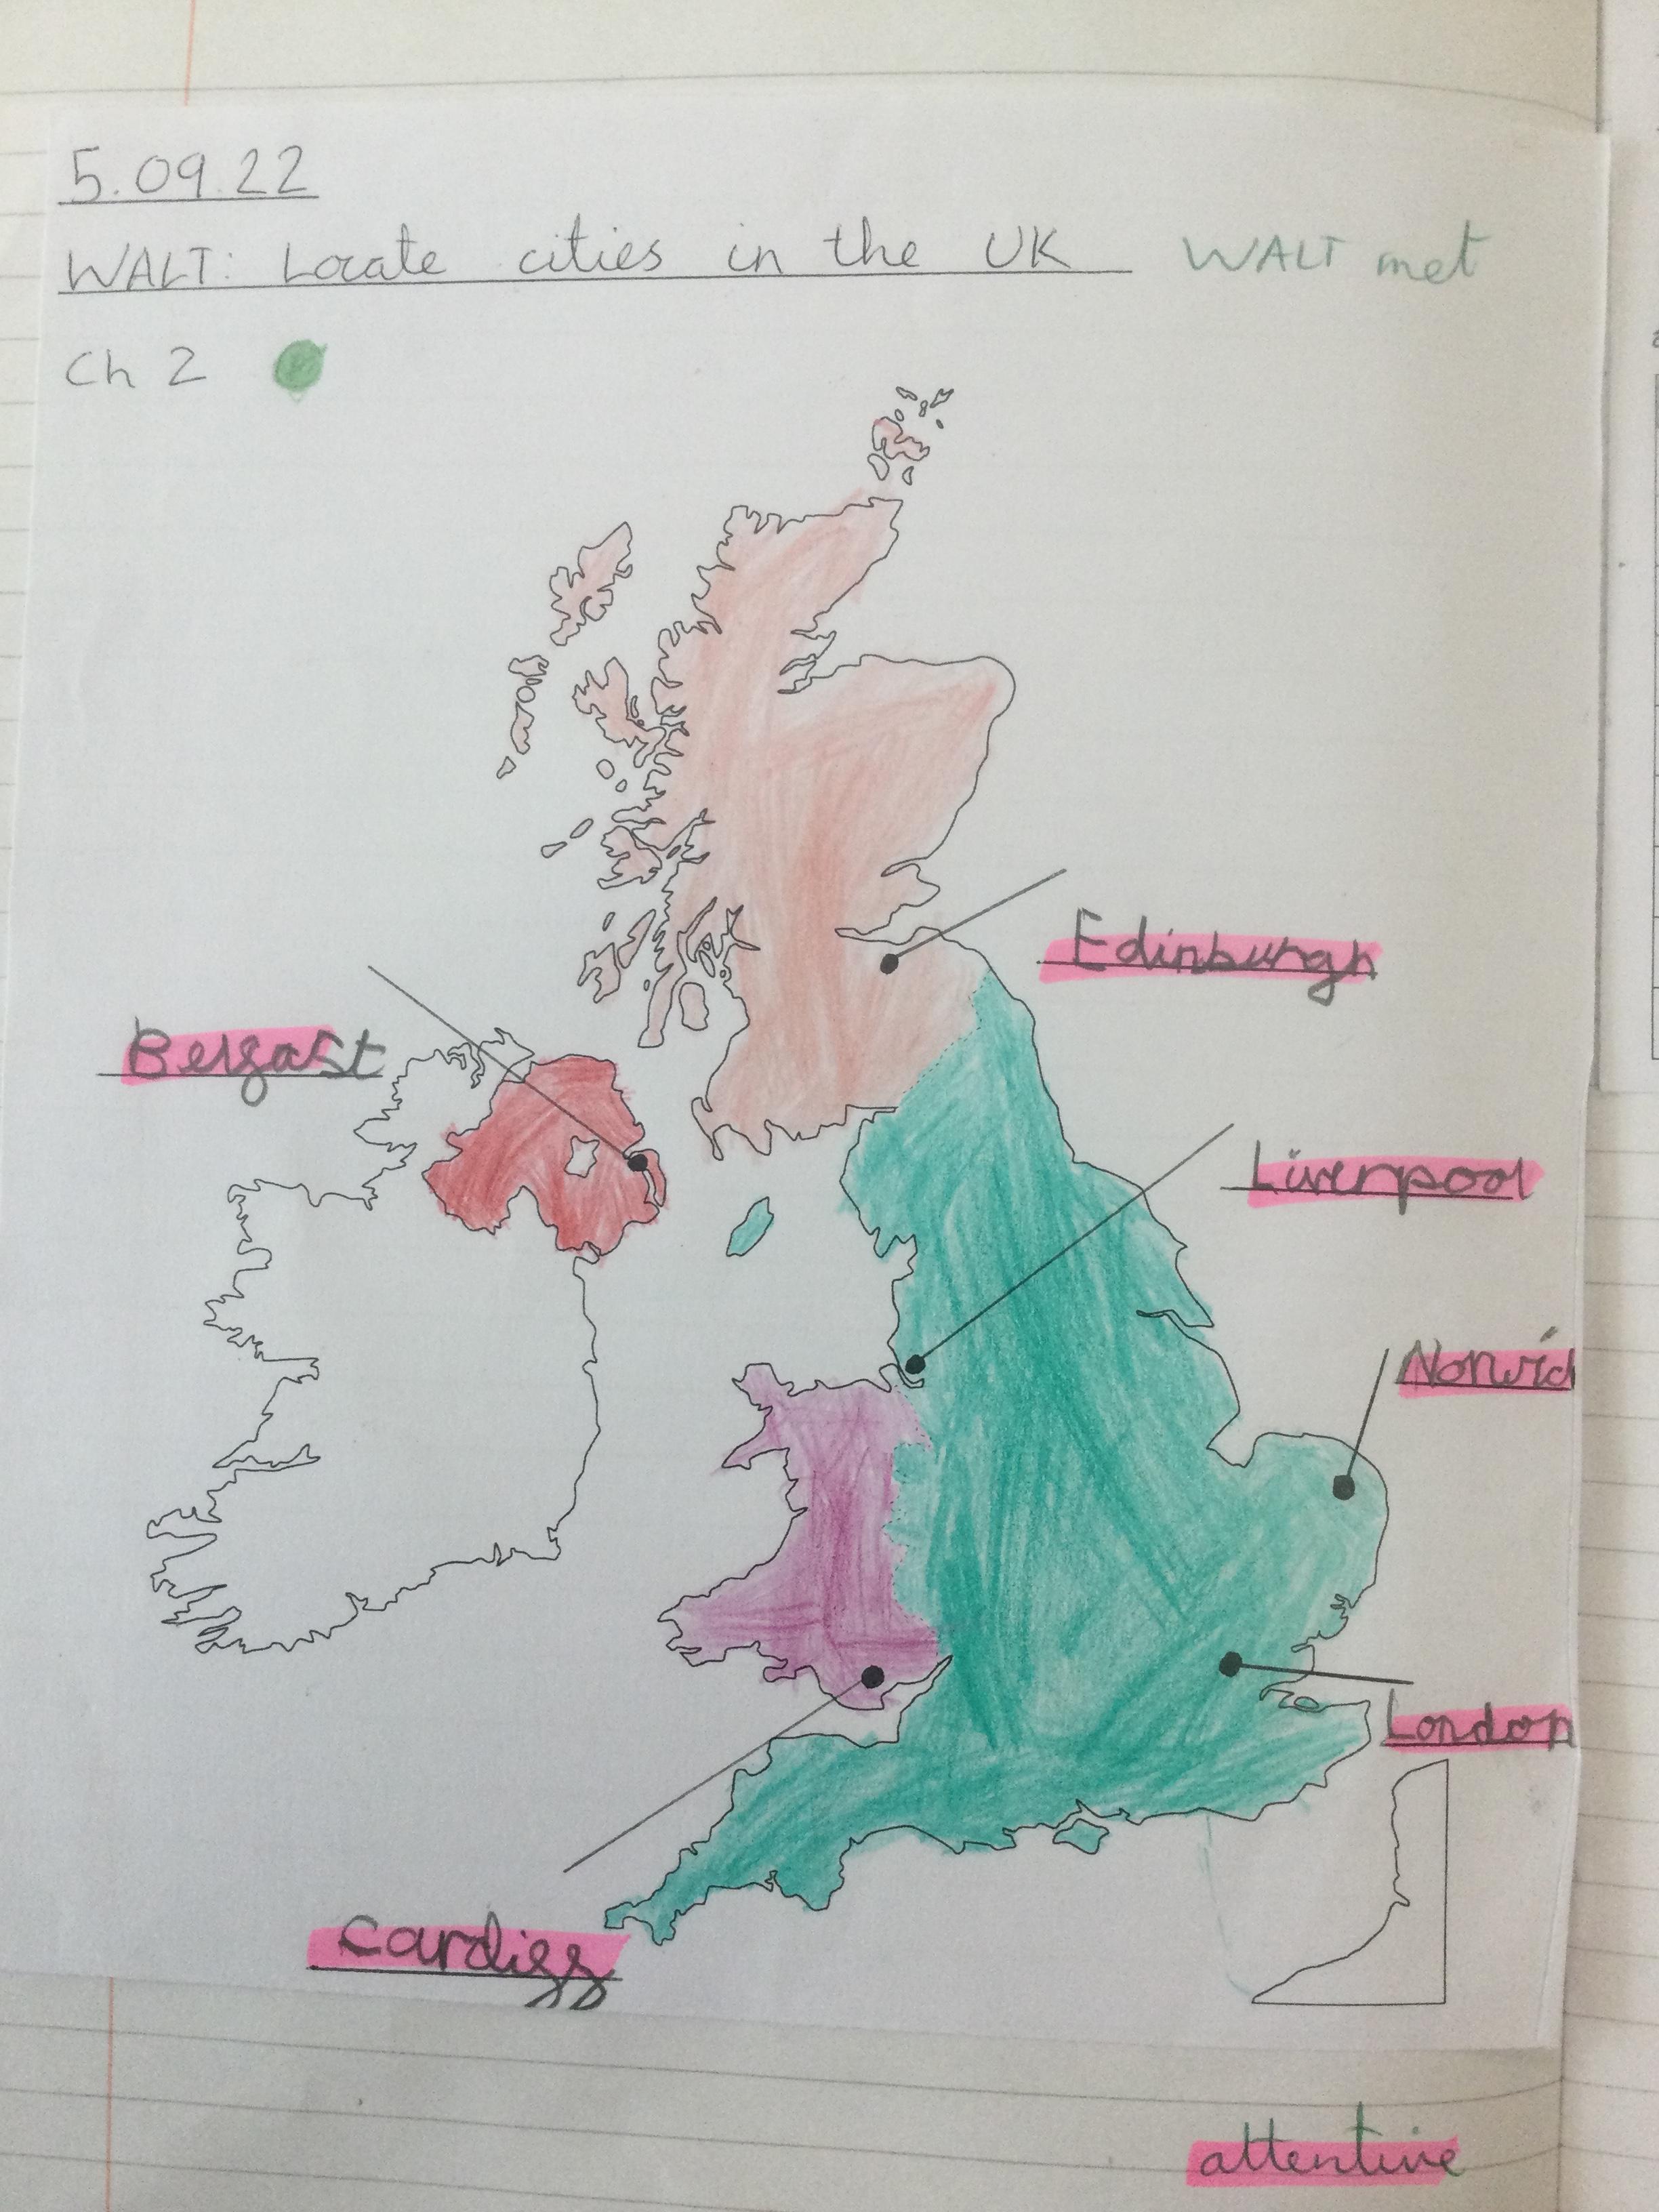 5.09.22
WALT: Locate cities in the UK WALT met
Ch 2
Edinburgh
Belfast
Liverpool
Norwich
London
Cardiff
attentive